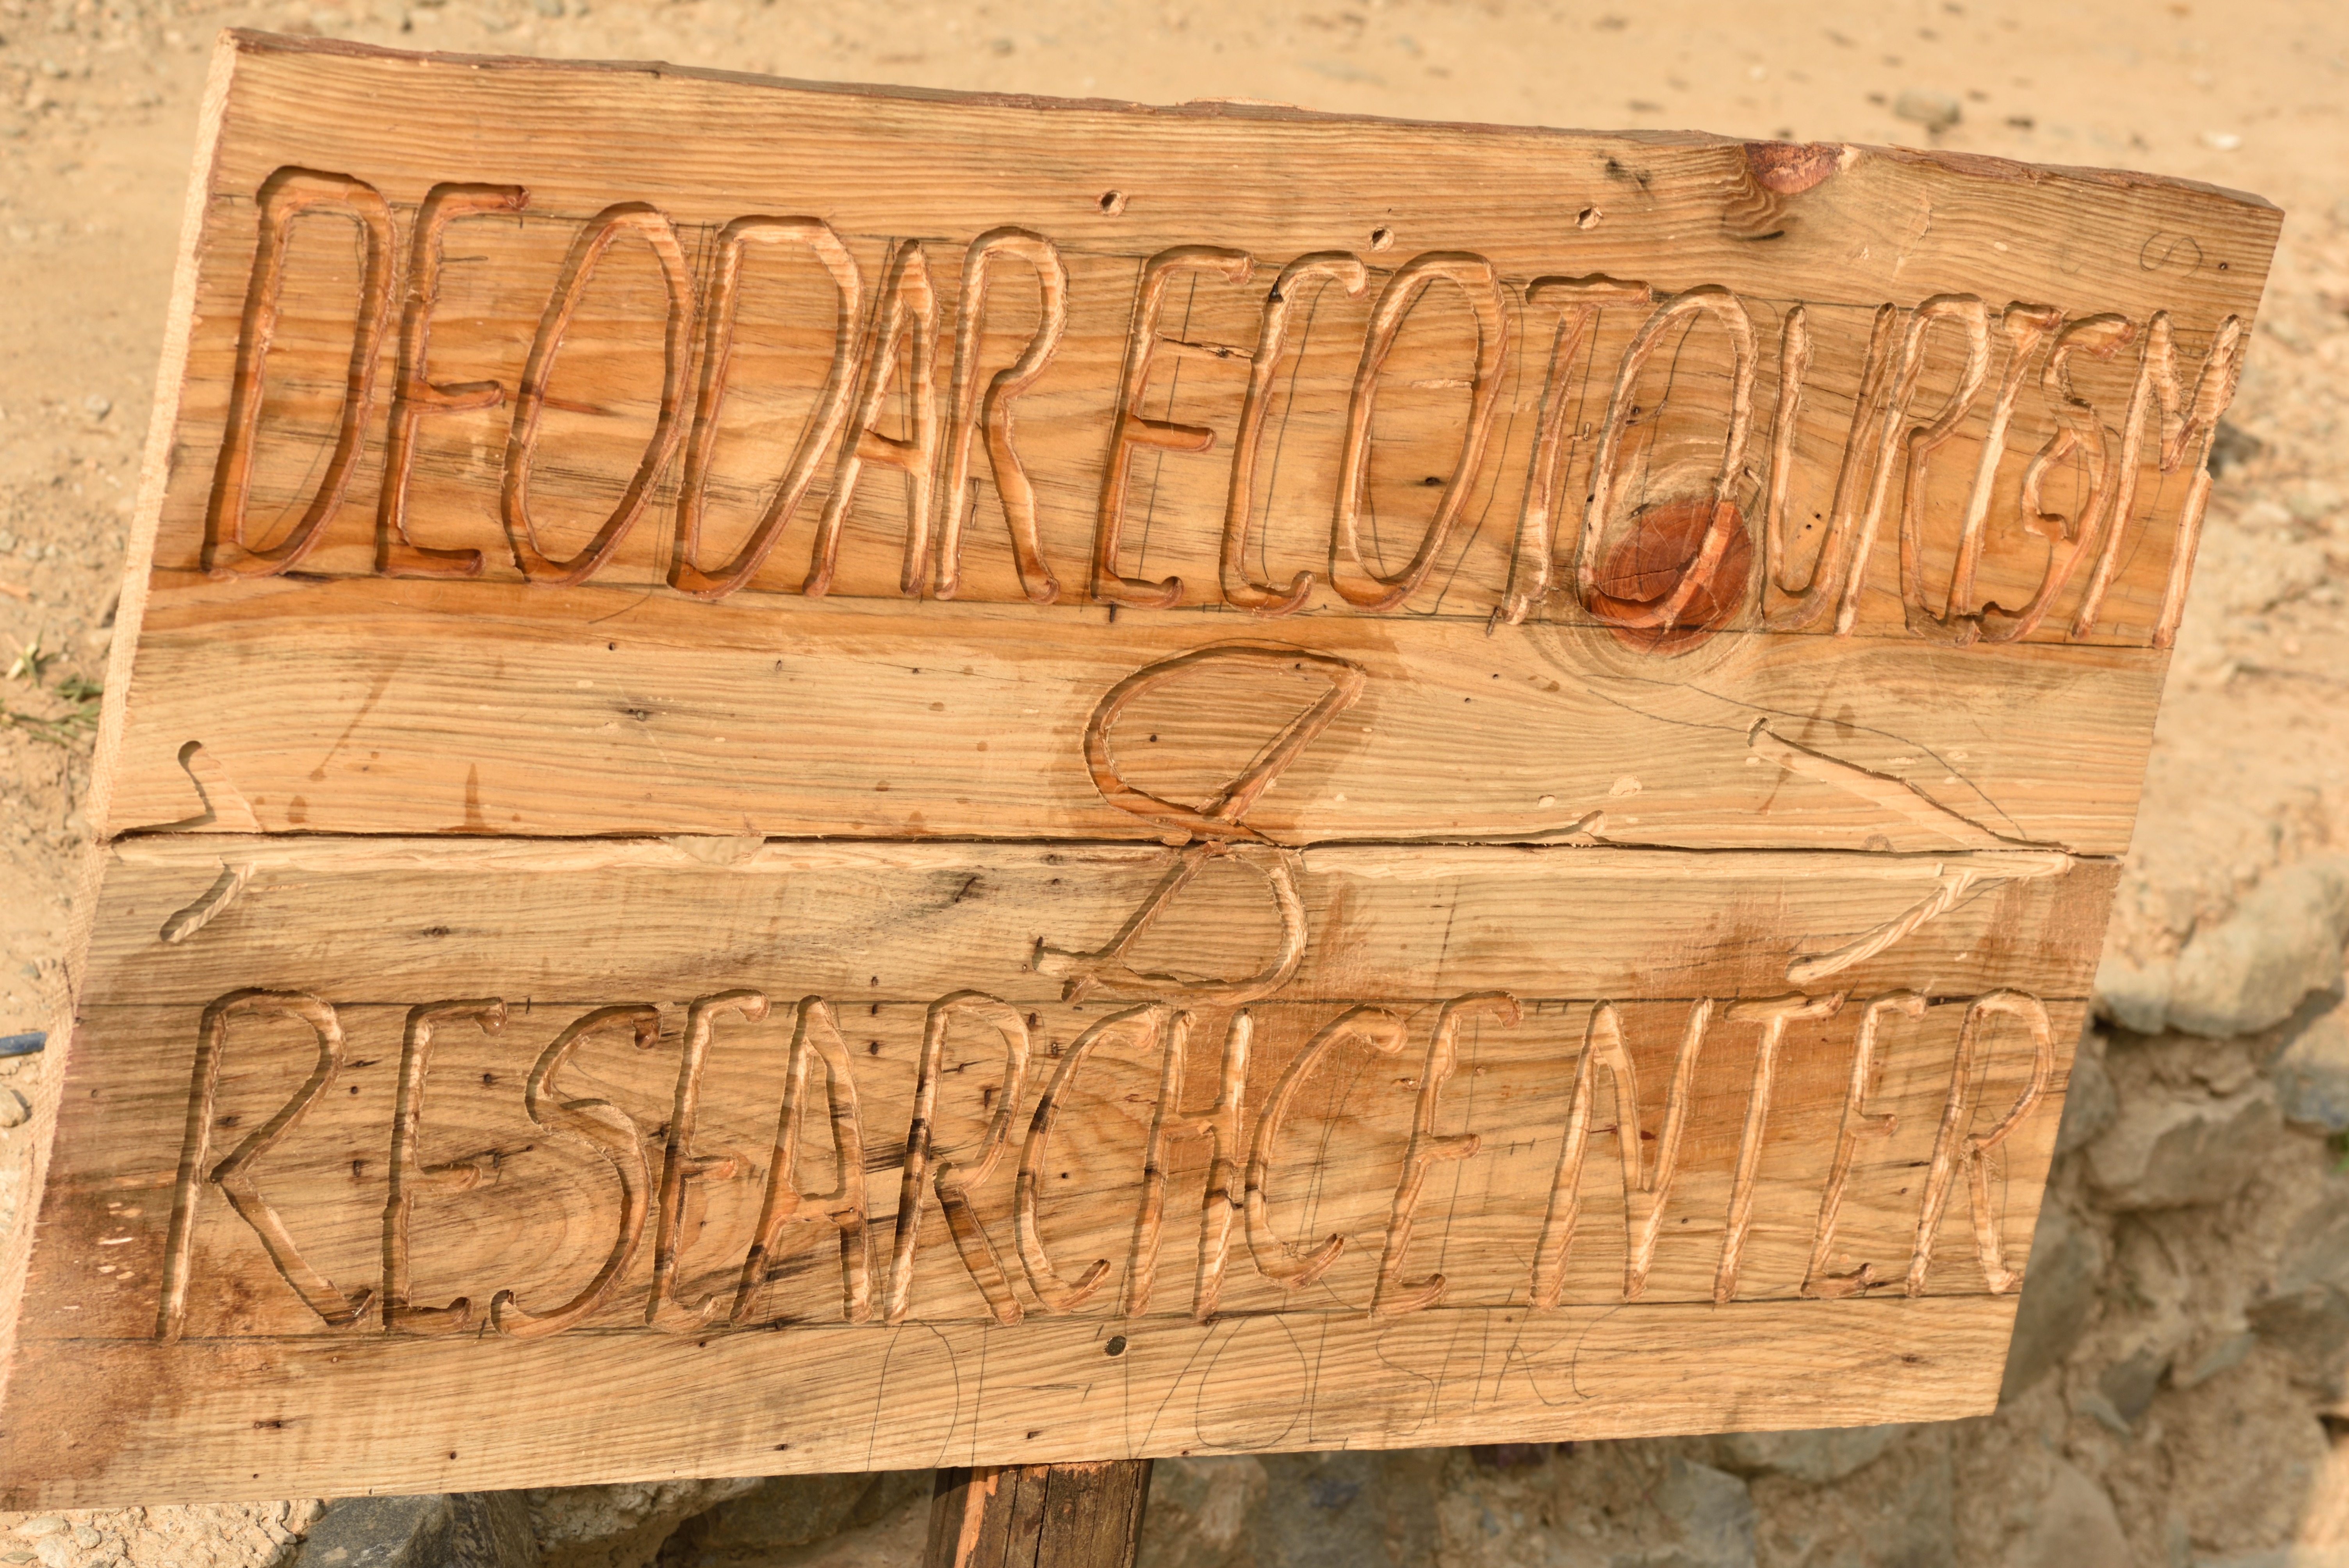 DEODAR ECOTOURISM
&
RESEARCH CENTER